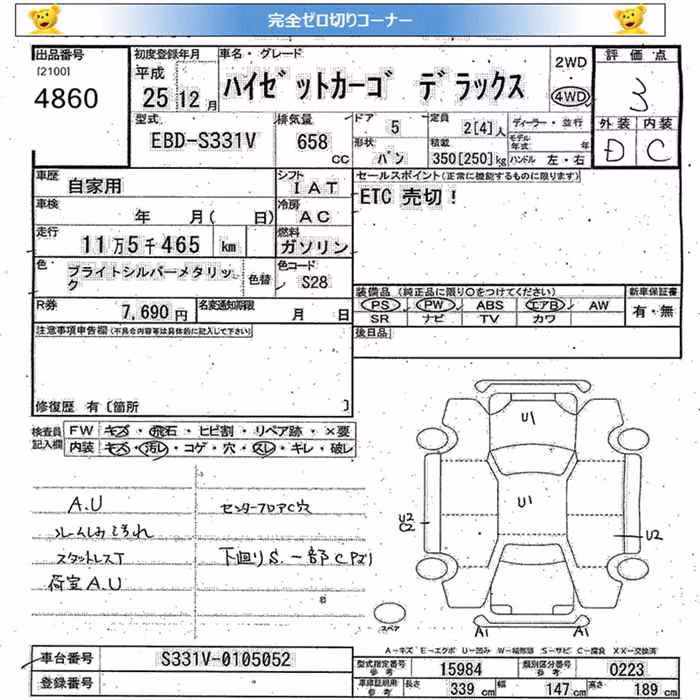 完全ゼロ切りコーナー
出品番号
[2100]
4860
初度登録年月
平成
25 12月
車名・グレード
ハイゼットカーゴ デラックス
2WD
4WD
評価点
3
外装 内装
D C
型式
EBD-S331V
排気量
658
CC
ドア
5
定員
2[4]人
ディーラー・並行
モデル
年式 年
形状
バン
積載
350[250]kg
ハンドル 左・右
車歴
自家用
シフト
IAT
セールスポイント(正常に機能するものに限ります)
ETC 売切!
車検
年 月( 日)
冷房
AC
走行
11万5千465 km
燃料
ガソリン
色
ブライトシルバーメタリック
色替
色コード
S28
装備品 (純正品に限り〇をつけてください)
PS PW ABS エアB AW
SR ナビ TV カワ
新車保証書
有・無
R券
7,690円
名変通知期限
月 日
後日品
注意事項申告欄(不具合内容等は具体的に記入して下さい)
修復歴 有〔箇所 〕
検査員
記入欄
FW キズ・飛石・ヒビ割・リペア跡・×要
内装 キズ・汚レ・コゲ・穴・スレ・キレ・破レ
A.U
センターフロアC穴
ルームしみ よごれ
スタットレスT
下廻りS. 一部C有り
荷室A.U
U1
U1
U2
C2
U2
スペア
A1 A1
A-キズ E-エクボ U-凹み W-補修跡 S-サビ C-腐食 XX-交換済
車台番号
S331V-0105052
登録番号
型式指定番号
参考
15984
類別区分番号
参考
0223
車検証明規
参考
長さ
339 cm
幅
147 cm
高さ
189 cm